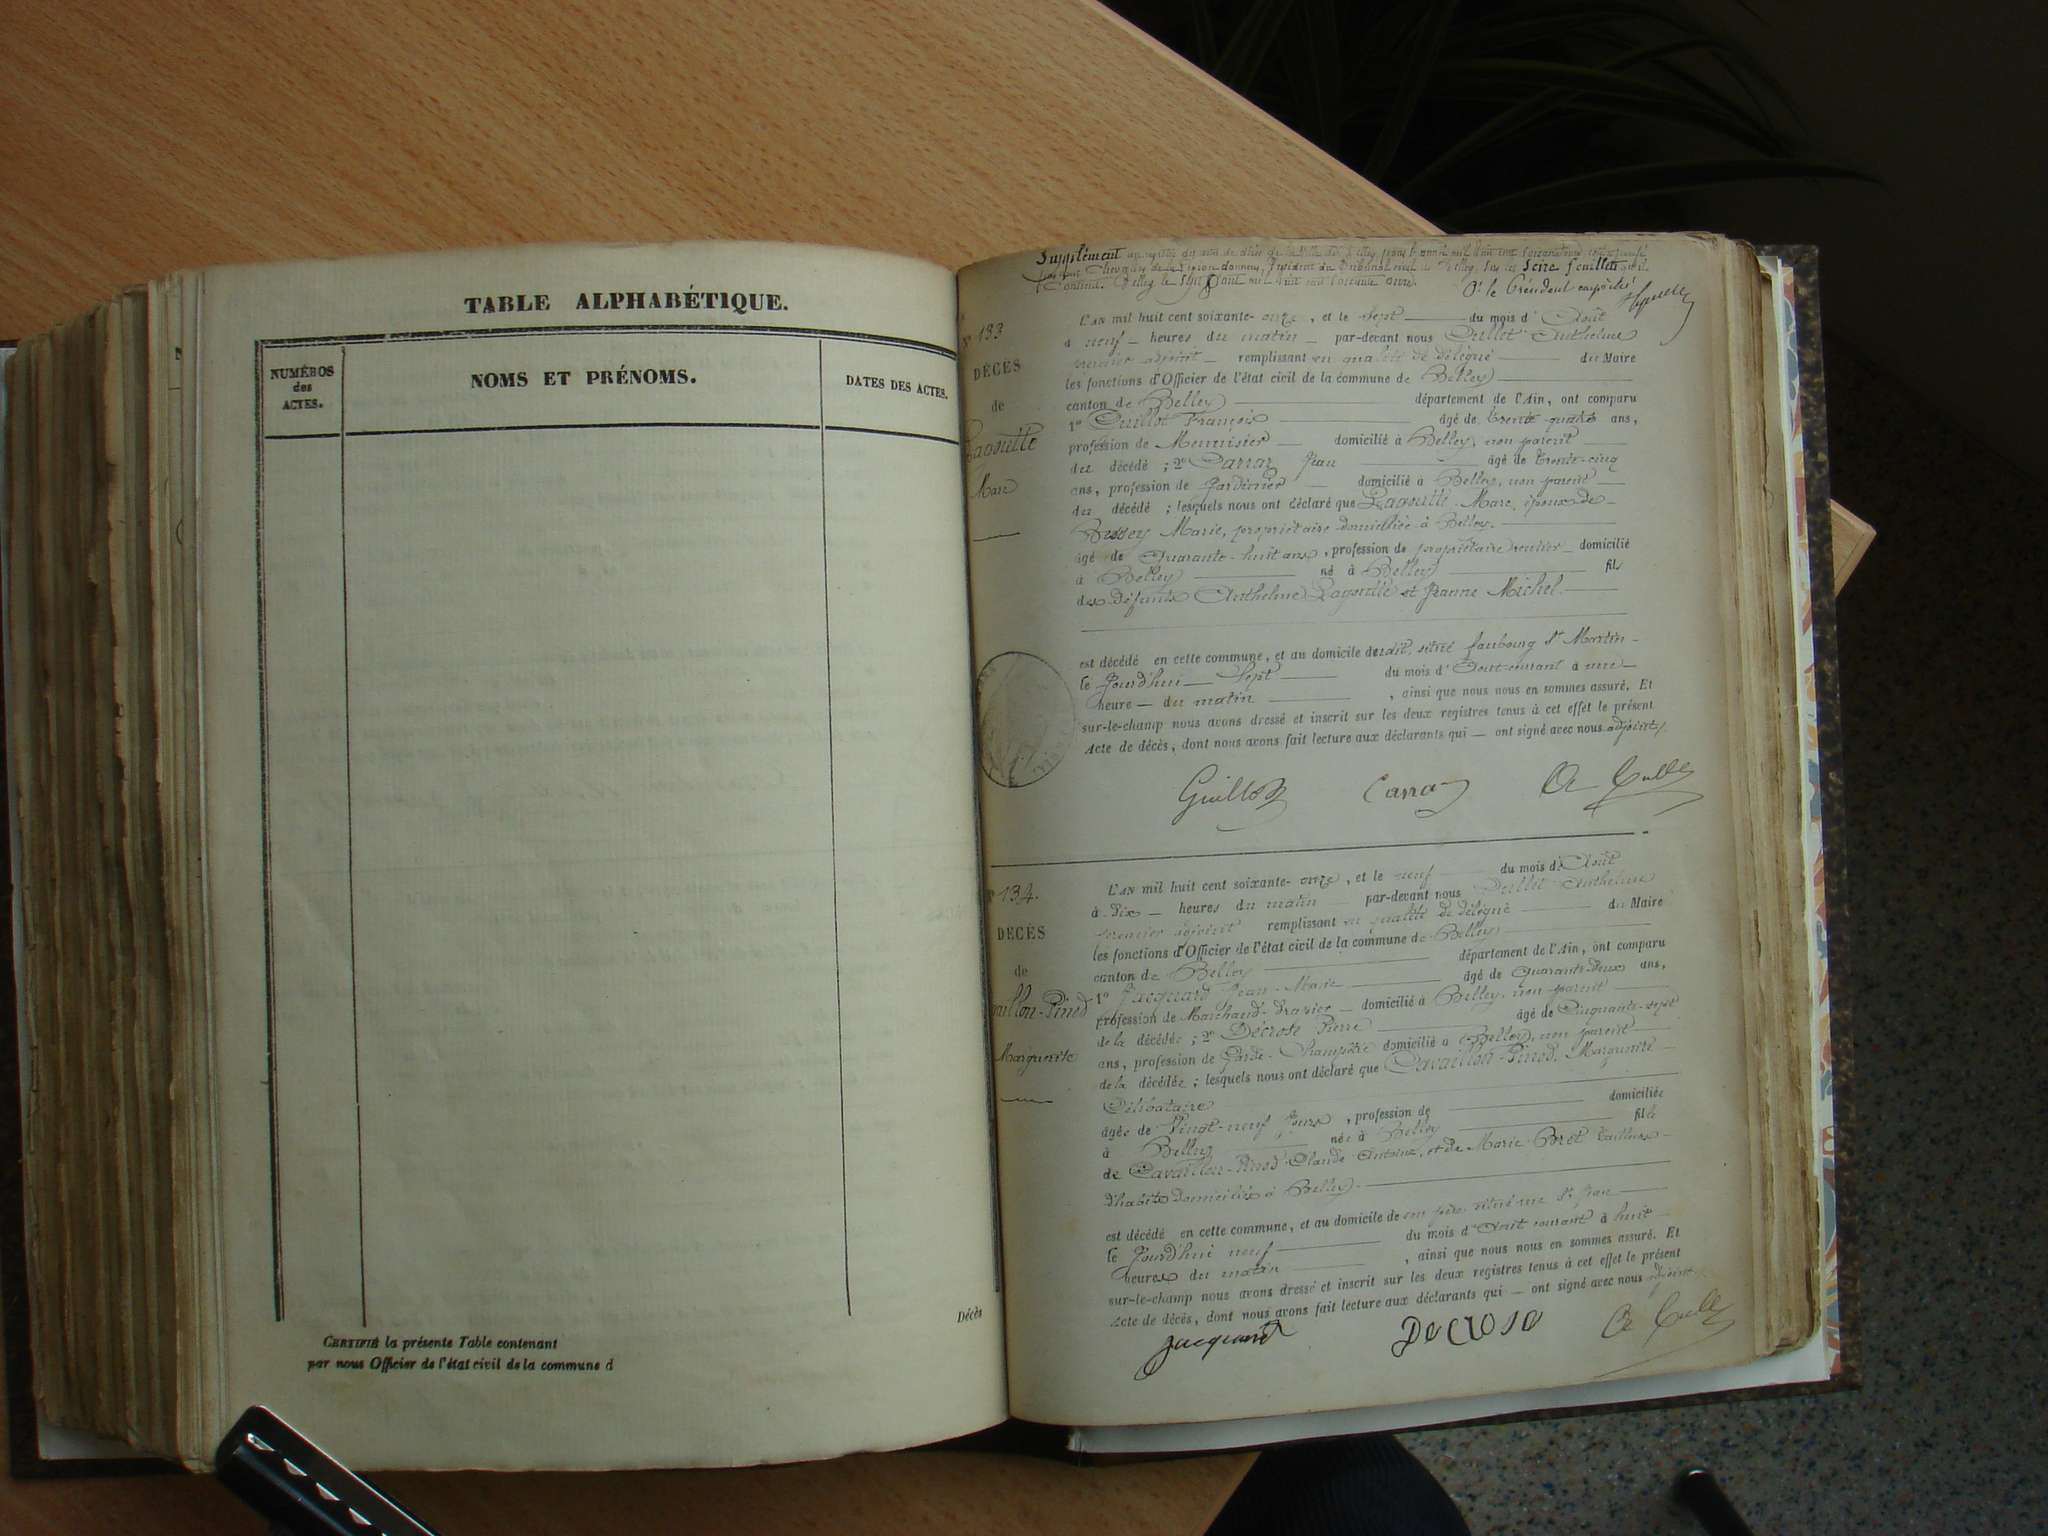 TABLE ALPHABÉTIQUE.
NUMÉROS
des
ACTES.
NOMS ET PRÉNOMS.
DATES DES ACTES.
Décès
CERTIFIÉ la présente Table contenant
par nous Officier de l'état civil de la commune d
Supplément
Seize feuillets
N° 133
DÉCÈS
de
Lagoutte
Marc
L'AN mil huit cent soixante-onze, et le sept du mois d'Août
à neuf heures du matin par-devant nous Dullet Anthelme
premier adjoint remplissant en qualité de délégué du Maire
les fonctions d'Officier de l'état civil de la commune de Belley
canton de Belley département de l'Ain, ont comparu
1° Guillot François âgé de trente-quatre ans,
profession de Menuisier domicilié à Belley, non parent
du décédé ; 2° Carraz Jean âgé de trente-cinq
ans, profession de Jardinier domicilié à Belley, non parent
du décédé ; lesquels nous ont déclaré que Lagoutte Marc, époux de
Marie, propriétaire domiciliée à Belley.
âgé de Quarante-huit ans, profession de propriétaire rentier domicilié
à Belley né à Belley fils
des défunts Anthelme Lagoutte et Jeanne Michel.
est décédé en cette commune, et au domicile susdit, situé faubourg St Martin
le Jourd'hui Sept du mois d'Août courant à une
heure du matin, ainsi que nous nous en sommes assuré. Et
sur-le-champ nous avons dressé et inscrit sur les deux registres tenus à cet effet le présent
Acte de décès, dont nous avons fait lecture aux déclarants qui ont signé avec nous adjoint.
Guillot Carraz
N° 134.
DÉCÈS
de
aillon-Pinod
Marguerite
L'AN mil huit cent soixante-onze, et le neuf du mois d'Août
à dix heures du matin par-devant nous Dullet Anthelme
premier adjoint remplissant en qualité de délégué du Maire
les fonctions d'Officier de l'état civil de la commune de Belley
canton de Belley département de l'Ain, ont comparu
1° Jacquard Jean-Marie âgé de Quarante-deux ans,
profession de Marchand-Drapier domicilié à Belley, non parent
de la décédée ; 2° Décrose Pierre âgé de Cinquante-sept
ans, profession de Garde-Champêtre domicilié à Belley, non parent
de la décédée ; lesquels nous ont déclaré que Cavaillon-Pinod, Marguerite
Célibataire
âgée de Vingt-neuf jours, profession de domiciliée
à Belley née à Belley fille
de Cavaillon-Pinod Claude Antoine, et de Marie Bret tailleurs
d'habits domiciliés à Belley.
est décédé en cette commune, et au domicile de son père situé rue St Jean
le Jourd'hui neuf du mois d'Août courant à huit
heures du matin, ainsi que nous nous en sommes assuré. Et
sur-le-champ nous avons dressé et inscrit sur les deux registres tenus à cet effet le présent
Acte de décès, dont nous avons fait lecture aux déclarants qui ont signé avec nous adjoint
Jacquard Decrose